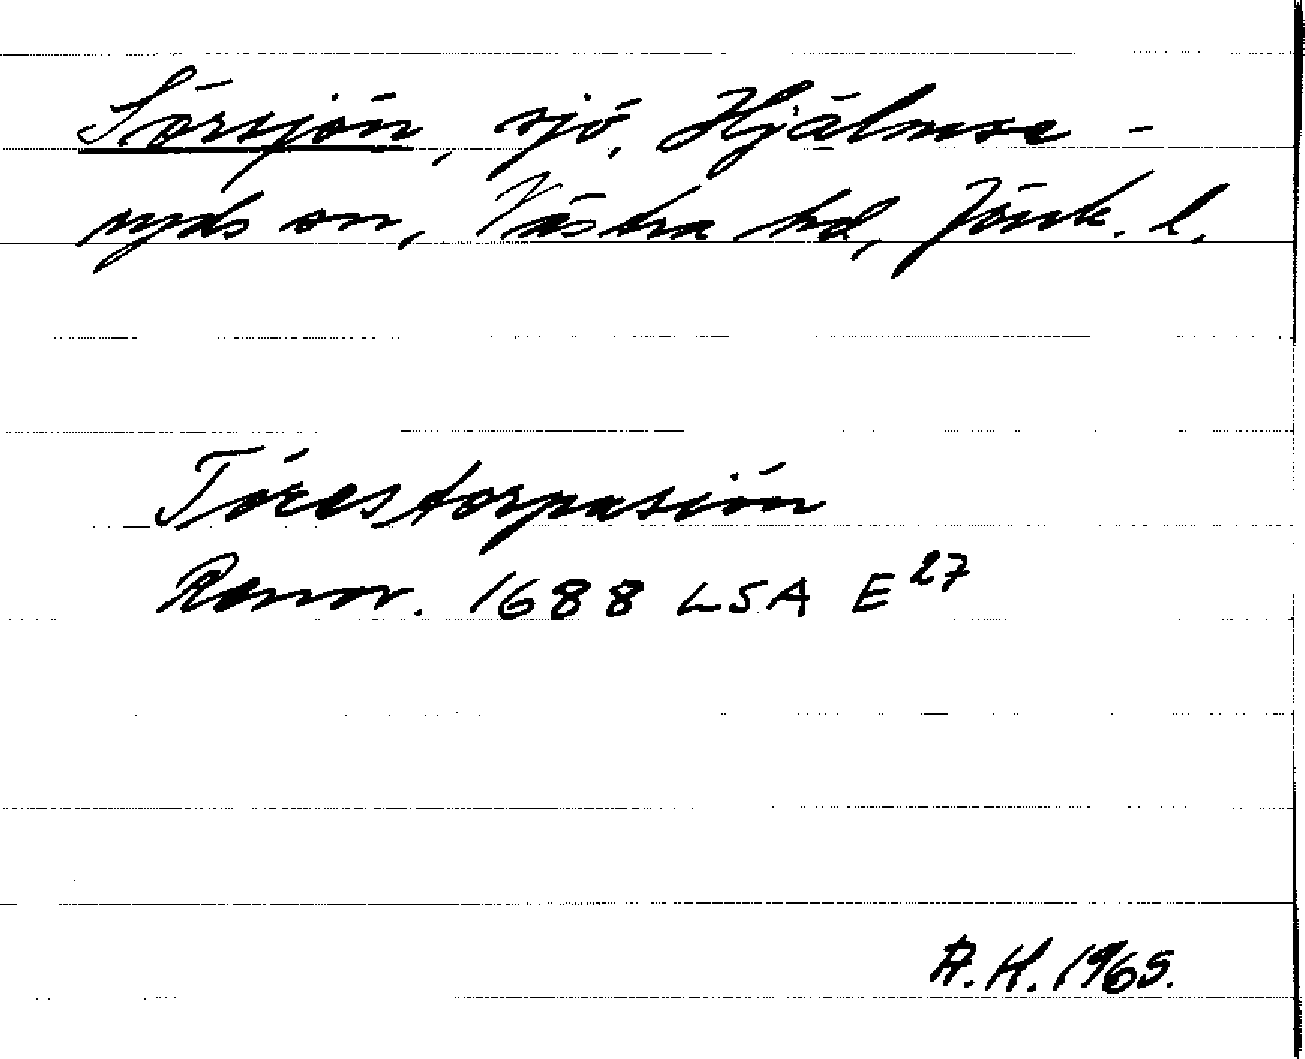 Sörsjön, sjö, Hjälmse-
ryds sn, Västra hd, Jönk. l.
Törestorpasiön
Rannr. 1688 LSA E27
A.K. 1965.